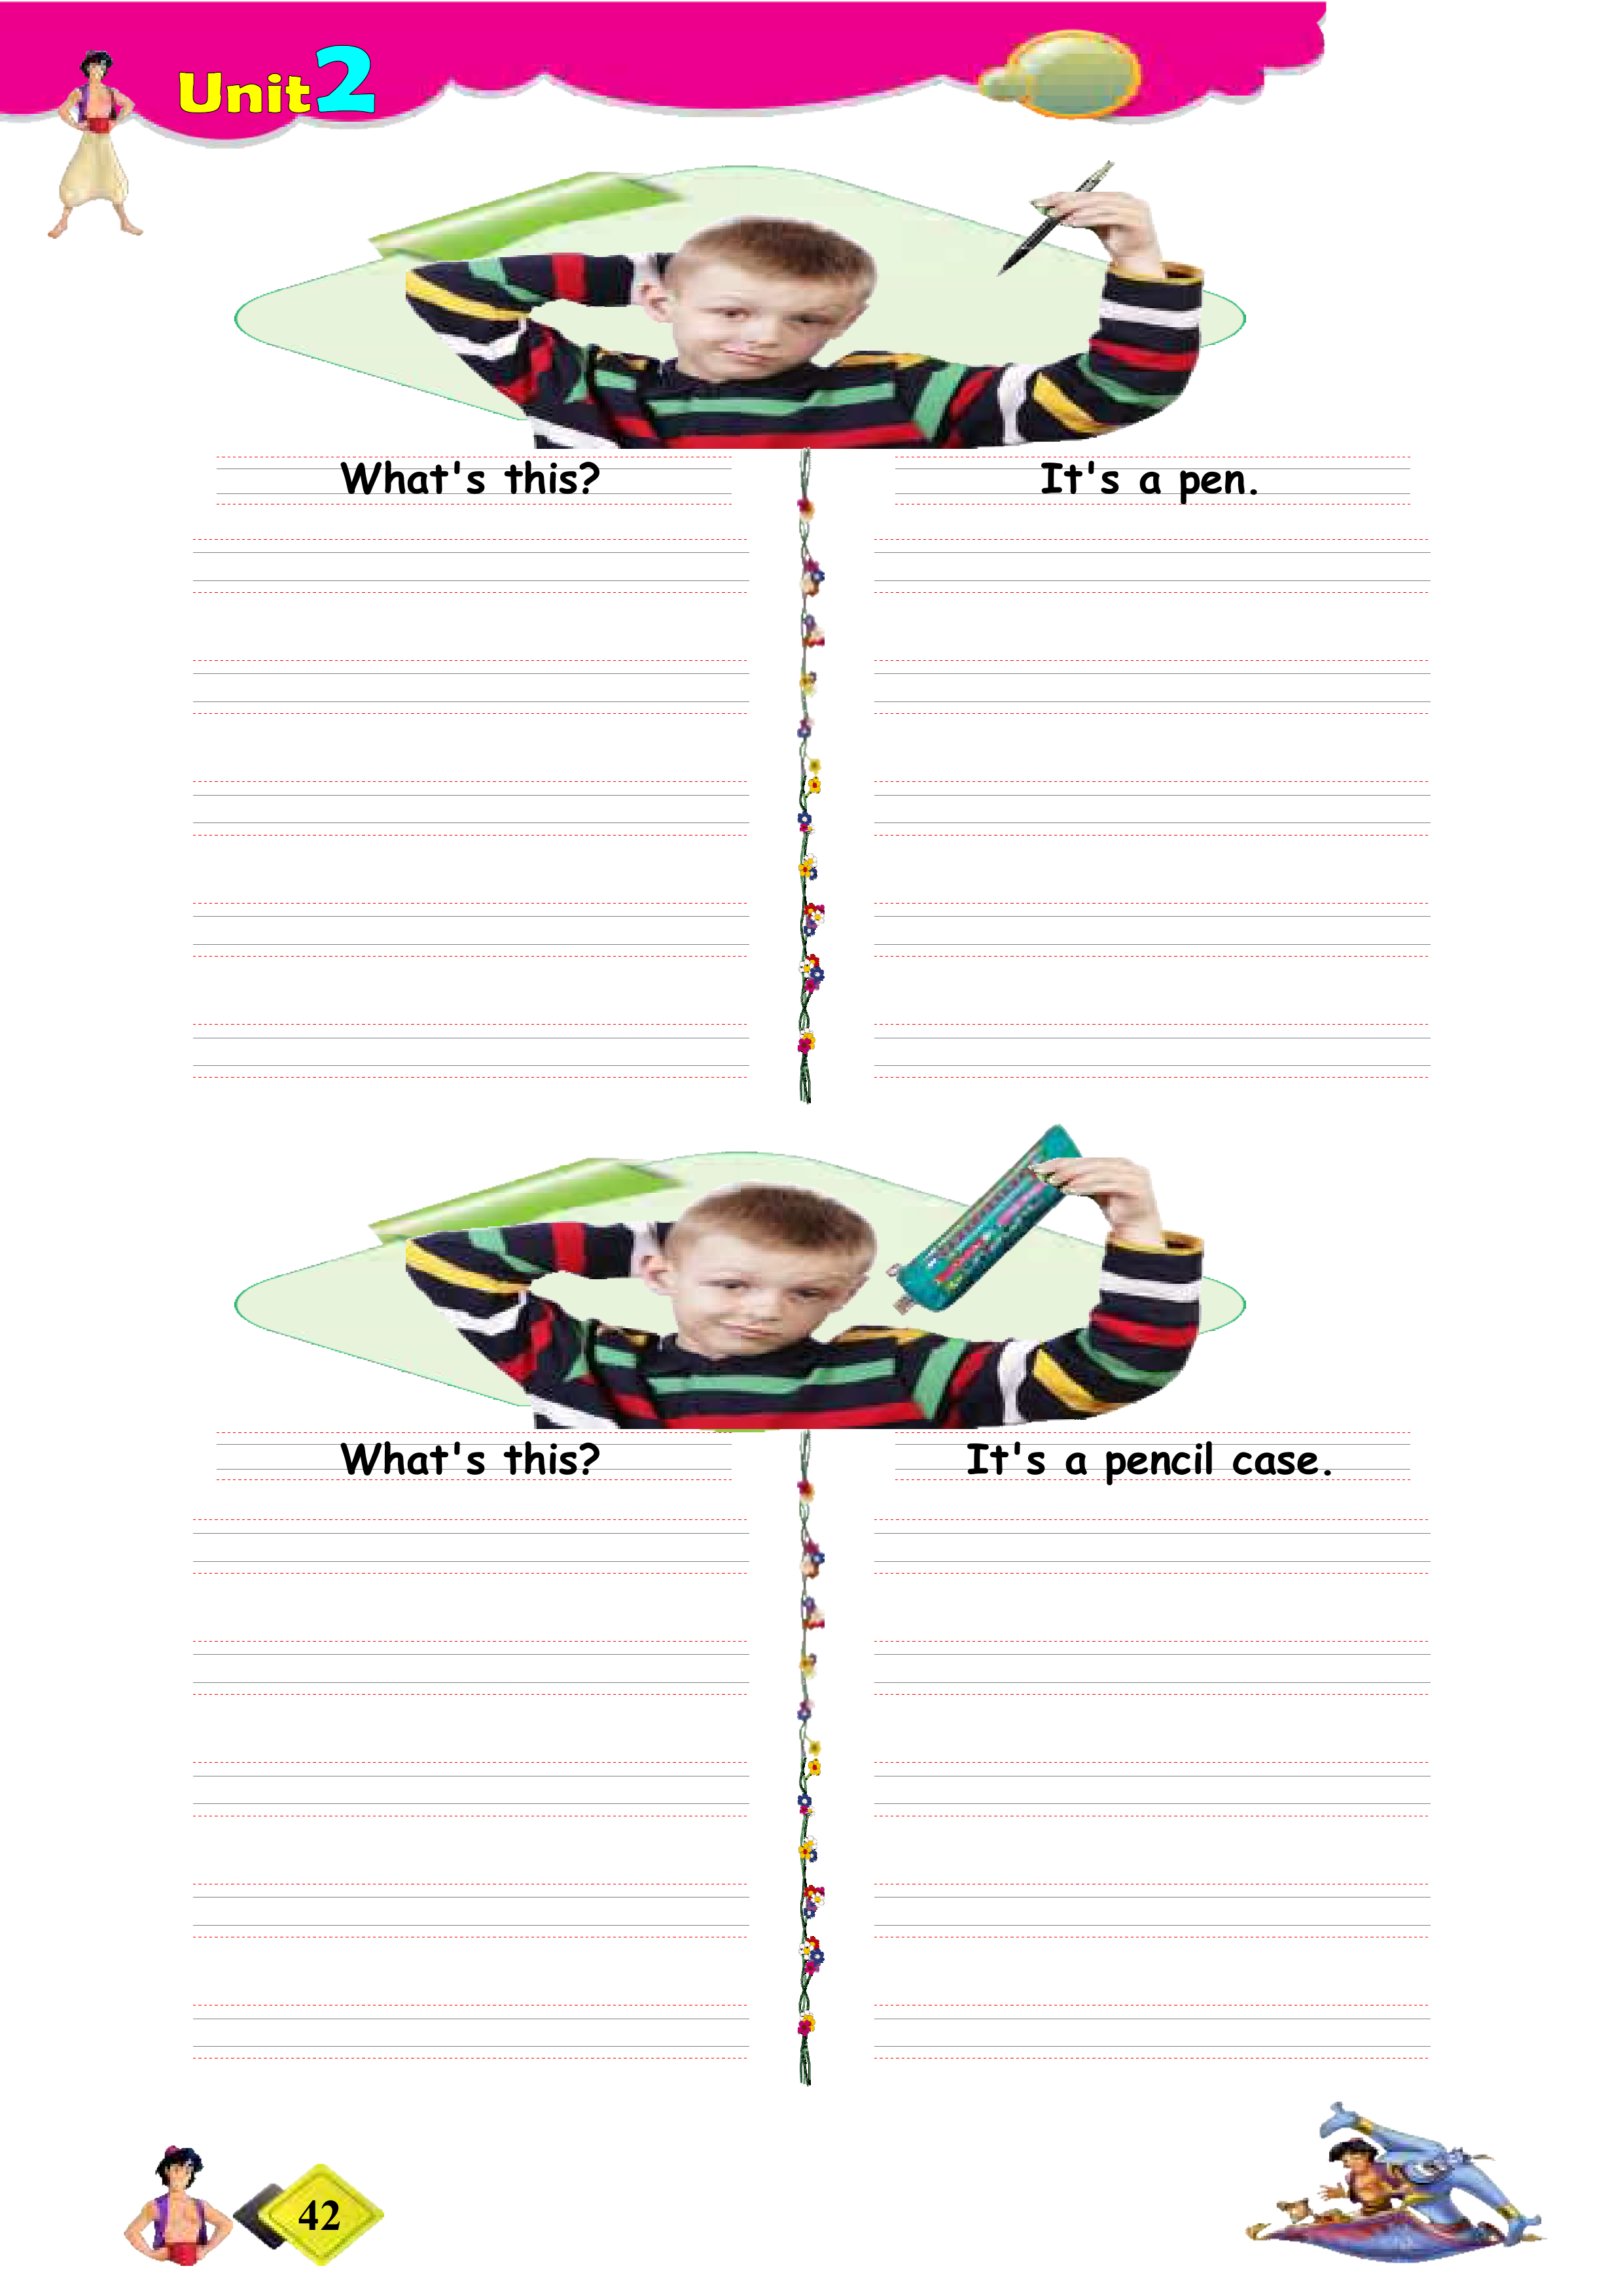 Unit 2
What's this?
It's a pen.
What's this?
It's a pencil case.
42